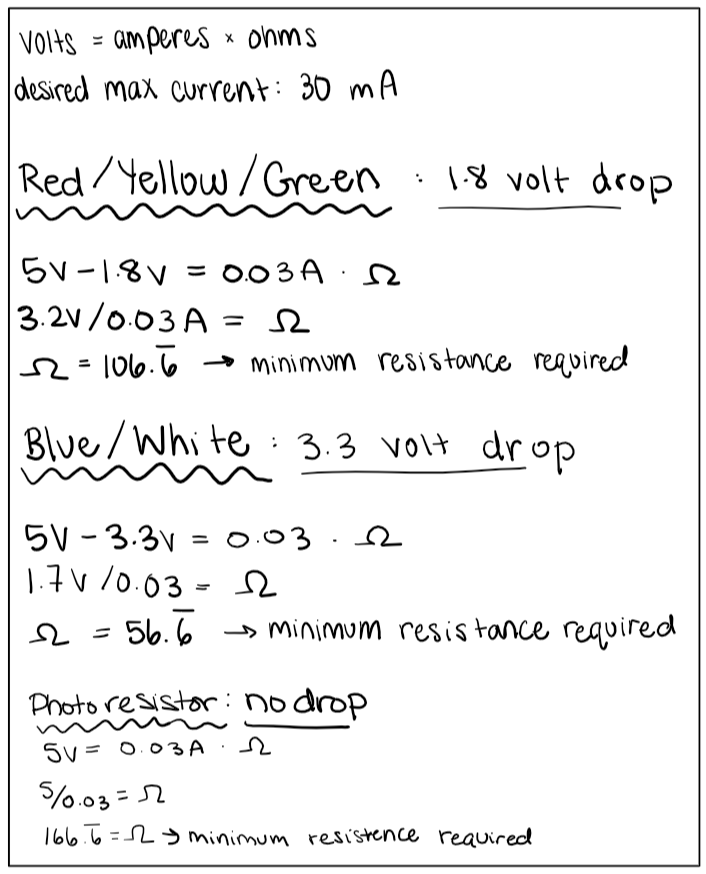 volts = amperes × ohms
desired max current: 30 mA
Red/Yellow/Green : 1.8 volt drop
5V - 1.8V = 0.03A · Ω
3.2V/0.03A = Ω
Ω = 106.6̅ → minimum resistance required
Blue/White : 3.3 volt drop
5V - 3.3V = 0.03 · Ω
1.7V/0.03 = Ω
Ω = 56.6̅ → minimum resistance required
Photoresistor: no drop
5V = 0.03A · Ω
5/0.03 = Ω
166.6̅ = Ω → minimum resistence required